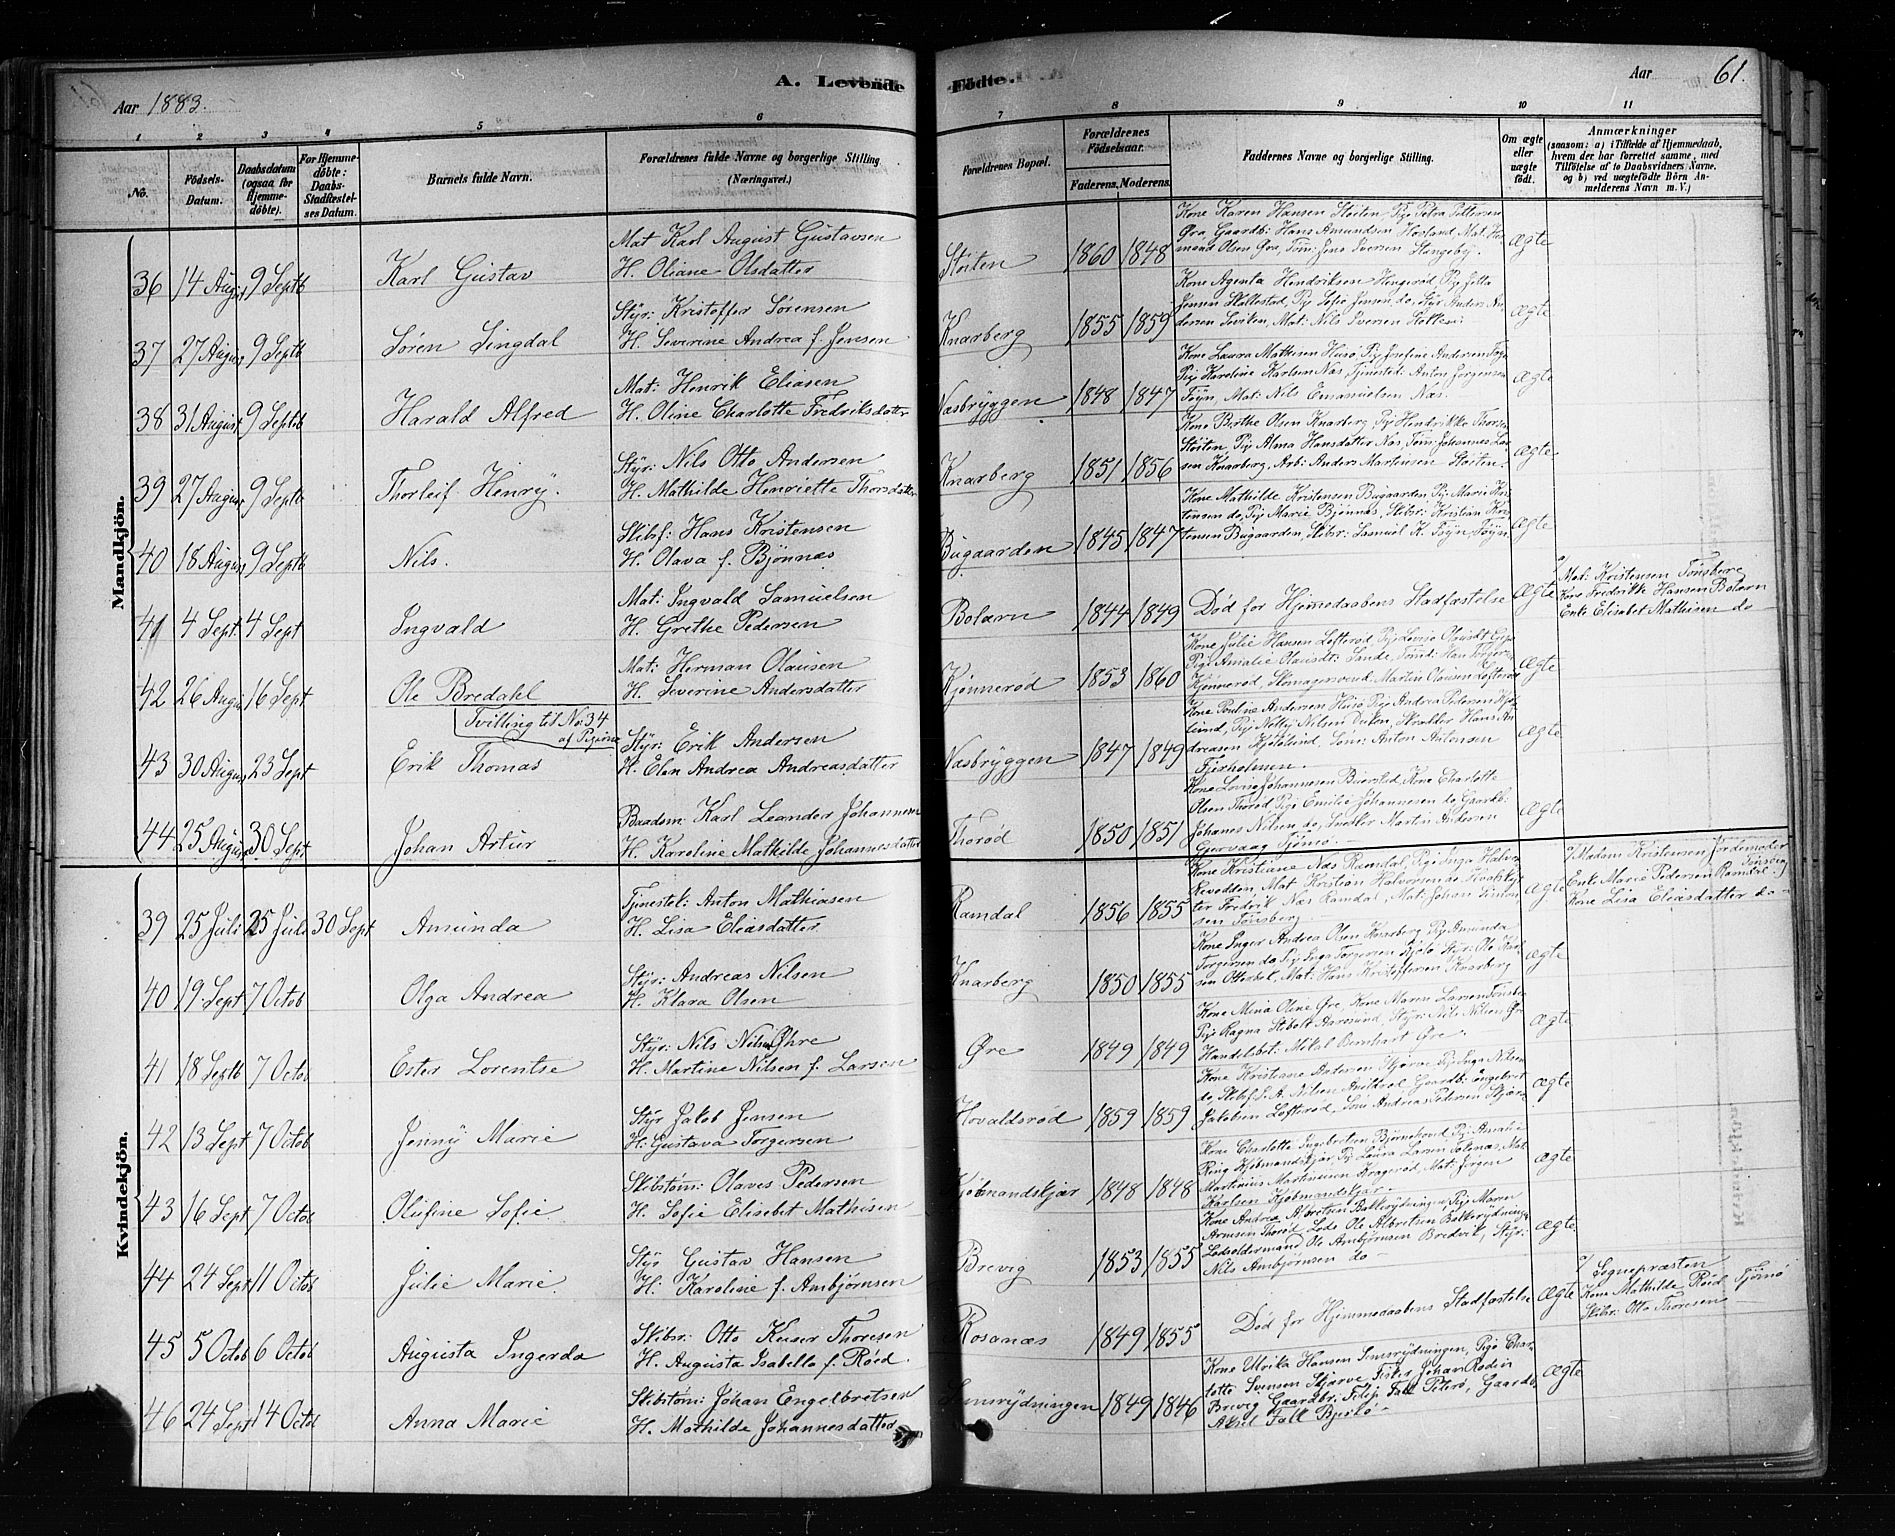 A. Levende Födte.
Aar 1883.
Aar 61.
1 2 3 4 5 6 7 8 9 10 11
No.
Födsels-Datum.
Daabsdatum (ogsaa for Hjemmedöbte).
For Hjemmedöbte: Daabs-Stadfæstelses Datum.
Barnets fulde Navn.
Forældrenes fulde Navne og borgerlige Stilling (Næringsvei.)
Forældrenes Bopæl.
Forældrenes Födselsaar.
Faderens. Moderens.
Faddernes Navne og borgerlige Stilling.
Om ægte eller uægte födt.
Anmærkninger
(saasom: a) i Tilfælde af Hjemmedaab, hvem der har forrettet samme, med Tilföielse af to Daabsvidners Navne, og b) ved uægtefödte Börn Anmelderens Navn m. V.)
Mandkjön.
36 14 August 9 Septb Karl Gustav
Mat Karl August Gustavsen
H. Oliane Olsdatter
Støiten 1860 1848
Kone Karen Hansen Støiten, Pige Petra Pettersen
Øra, Gaardb: Hans Amundsen Hosland, Mat.
Olsen Øra, Tøm: Jens Iversen Stangeby.
Ægte
37 27 August 9 Septb Søren Lingdal
Styr: Kristoffer Sørensen
H. Severine Andrea f. Jensen
Knarberg 1855 1859
Kone Agenta Hendriksen Hengerød, Pig Jetta
Jensen Skallestad, Pig Sofie Jensen do, Styr Anders
Leviken, Mat: Nils Iversen
Ægte
38 31 August 9 Septb Harald Alfred
Mat: Henrik Eliasen
H. Oline Charlotte Fredriksdatter
Næsbryggen 1848 1847
Kone Laura Mathisen Husø, Pig Josefine Andersen
Pige Karoline Karlsen Næs, Tjenestek: Anton Jørgensen
Føyn, Mat: Nils Emanuelsen Næs.
Ægte
39 27 August 9 Septb Thorleif Henry.
Styr: Nils Otto Andersen
H. Mathilde Henriette Thorsdatter
Knarberg 1851 1856
Kone Berthe Olsen Knarberg, Pig Hendrikke Thorsen
Støiten, Pig Alma Hansdatter Næs, Tøm: Johannes Larsen
Knarberg, Arb: Anders Martinsen Støiten.
Ægte
40 18 August 9 Septb Nils.
Skibsf: Hans Kristensen
H. Olava f. Bjønnæs
Bugaarden 1845 1847
Kone Mathilde Kristensen Bugaarden, Pig Marie Kristensen
do, Pig Marie Bjønnæs, Skibr: Kristian Kristensen
Bugaarden, Skibr: Samuel K. Føyn, Føyn
Ægte
41 4 Sept. 4 Sept Ingvald
Mat: Ingvald Samuelsen
H. Grethe Pedersen
Bolærn 1844 1849
Død før Hjemedaabens Stadfæstelse
Ægte
a/ Mad: Kristensen Tønsberg
Kone Fredrikke Hansen Bolærn
Enke Elisabet Mathisen do
42 26 August 16 Sept Ole Bredahl
Mat: Herman Olausen
H. Severine Andersdatter
Kjønnerød 1853 1860
Kone Julie Hansen Lofterød,
Pige Amalie Olausdt: Sande,
Kjønnerød, Skomagersvend: Martin Olausen Lofterød
Ægte
Tvilling til No: 34
af Pigerne
43 30 August 23 Sept Erik Thomas
Styr: Erik Andersen
H. Elen Andrea Andreasdatter
Næsbryggen 1847 1849
Kone Pouline Andersen Husø, Pige Andrea Pedersen
Pig Nelly Nilsen Duken, Skrædder Hans Andreasen
Kjøleland, Tøm: Anton Antonsen
Fjærholmen.
Ægte
44 25 August 30 Sept Johan Artur
Baadsm: Karl Leander Johannesen
H. Karoline Mathilde Johannesdatter
Thorød 1850 1851
Kone Lovise Johannesen Buerstad, Kone Charlotte
Olsen Thorød, Pige Emilie Johannesen do, Gaardb:
Johanes Nilsen do, Martin Andersen
Tjømø.
Ægte
Kvindekjön.
39 25 Juli 25 Juli 30 Sept Amunda
Tjenestek: Anton Mathiasen
H. Lisa Eliasdatter
Ramdal 1856 1855
Kone Kristiane Næs Ramdal, Pige Inga
Revedden, Mat Kristian Halvorsen do,
Fredrik Næs Ramdal, Mat: Johan Simonsen
Tønsberg.
Ægte
a/ Madam Kristensen Jordemoder Tønsberg
Enke Marie Petersen Ramdal
Kone Lisa Eliasdatter do
40 19 Sept 7 Octob Olga Andrea
Styr: Andreas Nilsen
H. Klara Olsen
Knarberg 1850 1855
Kone Inger Andrea Olsen Knarberg, Pig Amunda
Torgersen do, Pig Inga Torgersen Kjøle, Styr: Ole Karlsen
Otterbæk, Mat: Hans Kristoffersen Knarberg
Ægte
41 18 Septb 7 Octob Ester Lorentse
Styr: Nils Nilsen Øhre
H. Martine Nilsen f. Larsen
Øre 1849 1849
Kone Mina Oline Øre, Kone Maren Larsen Tønsberg
Pige Ragna Stibolt Aarøsund, Styr: Nils Nilsen Øre
Handelsbet: Mikal Bernhart Øre
Ægte
42 13 Sept 7 Octob Jenny Marie
Styr Jakob Jensen
H: Gustava Torgersen
Hovaldsrød 1859 1859
Kone Kristiane Andersen Skjærve, Pig Inga Nilsen
do, Skibsf. S. A. Nilsen, Gaardb: Engebret
Jakobsen Lofterød, Tøm: Andreas Petersen
Ægte
43 16 Sept 7 Octob Olufine Sofie
Skibstøm: Olaves Pedersen
H. Sofie Elisebet Mathisen
Kjøbmandskjær 1848 1848
Kone Charlotte Ingebertsen Bjørnehoved, Pig Amalie
Ring Kjøbmandskjær, Pig Laura Larsen Solenæs, Mat
Martinius Martinusen Kragerød, Mat: Jørgen
Karlsen Kjøbmandskjær.
Ægte
44 24 Sept 11 Octob Julie Marie
Styr Gustav Hansen
H: Karoline f. Ambjørnsen
Brevig 1853 1855
Kone Andrea Albretsen Bakkerydningen, Pige Maren
Arnesen Thorød, Lods Ole Albretsen Bakkerydningen
Lodsoldermand Ole Ambjørnsen Bredvik, Styr:
Nils Ambjørnsen do
Ægte
45 5 Octob 6 Octob Augusta Ingerda
Skibsr: Otto Keiser Thoresen
H. Augusta Isabella f. Røed.
Rosanæs 1849 1855
Død før Hjemmedaabens Stadfæstelse
Ægte
a/ Sognepræsten
Kone Mathilde Røed Tjømø
Skibr: Otto Thoresen
46 24 Sept 14 Octob Anna Marie
Skibstøm: Johan Engelbretsen
H. Mathilde Johannesdatter
Simsrydningen 1849 1846
Kone Ulrika Hansen Simsrydningen, Pige Charlotte
Svensen Skjærve, Fisker Johan Rodin
Brevig, Gaardbr: Filip Falk Peterø, Gaardb
Aksel Falk Bjerkø
Ægte